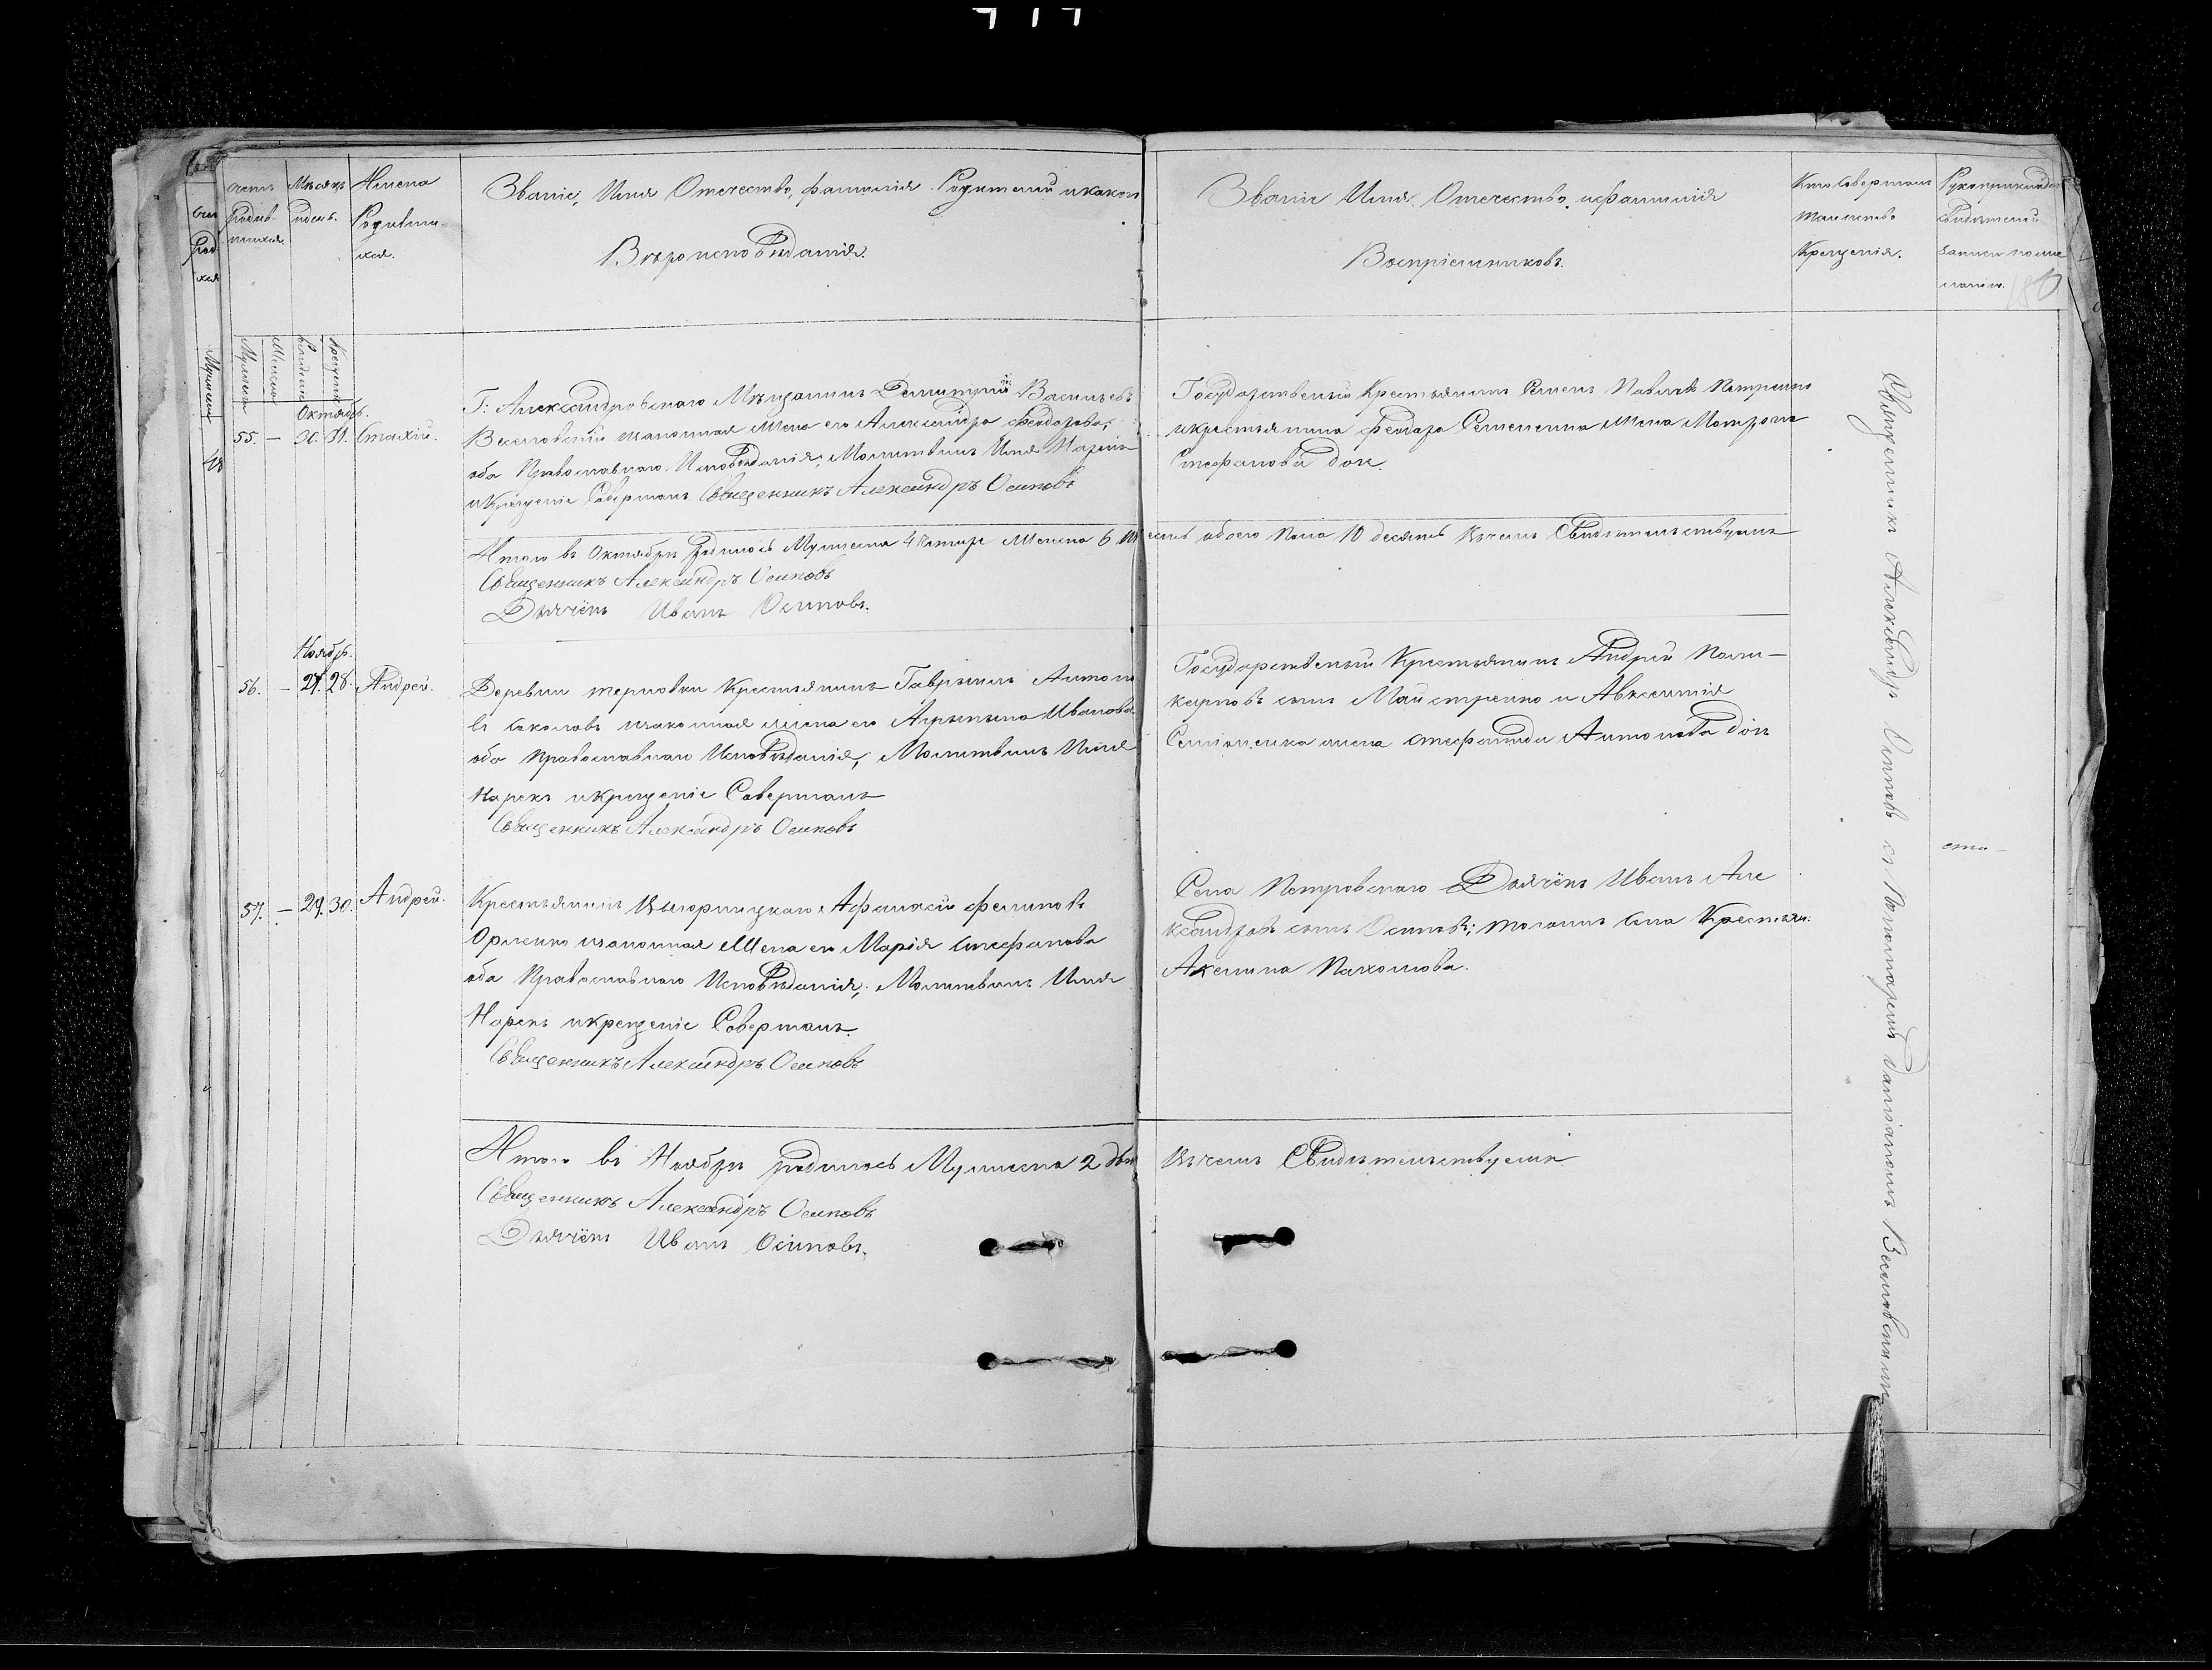 Счетъ родив-шихся
Мѣсяцъ и день.
Имена Родивши-хся.
Званіе, Имя Отечество, фамилія Родителей и какого
Вѣроисповѣданія.
Званіе Имя Отечество и фамилія
Воспріемниковъ.
Кто Совершалъ
таинство
Крещенія.
Рукоприкладство
свидѣтелей
записи по же-
ланію.
180
Мужеска
Женска
Рожденіе
Крещенія
Октябрь.
55. — 30. 31. Стахій.
Г: Александровскаго Мѣщанинъ Димитрій Васильевъ
Веселовскій и законная жена его Александра Феодорова;
оба Православнаго Исповѣданія; Молитвилъ Имя Нарекъ
и Крещеніе Совершалъ Священникъ Александръ Осиповъ
Государственный Крестьянинъ Семенъ Павловъ Петренко
и крестьянина Феодора Семененка жена Матрона
Стефанова дочь.
Итого въ Октябрѣ родилось Мужеска 4 четыре Женска 6 шесть обоего Пола 10 десять въ чемъ Свидѣтельствуемъ
Священникъ Александръ Осиповъ
Дьячёкъ Иванъ Осиповъ.
Ноябрь.
56. — 27. 28. Андрей.
Деревни терновки Крестьянинъ Гавріилъ Антоно
въ Соколовъ и законная жена его Агрыпына Иванова
оба Православнаго Исповѣданія; Молитвилъ Имя
Нарекъ и крещеніе Совершалъ
Священникъ Александръ Осиповъ
Государственный Крестьянинъ Андрей Поли-
карповъ сынъ Майстренко и Авксентія
Семененка жена Стефанида Антонова дочь
57. — 29. 30. Андрей.
Крестьянинъ Афанасій Филиповъ
Орленко и законная Жена его Марія Стефанова
оба Православнаго Исповѣданія; Молитвилъ Имя
Нарекъ и крещеніе Совершалъ.
Священникъ Александръ Осиповъ
Села Петровскаго Дьячёкъ Иванъ Але
ксандровъ сынъ Осиповъ; тогожъ села Крестьян:
Акелина Пахомова.
Итого въ Ноябрѣ родилось Мужеска 2 два въ чемъ Свидѣтельствуемъ
Священникъ Александръ Осиповъ
Дьячёкъ Иванъ Осиповъ.
Священникъ Александръ Осиповъ съ Пономаремъ Даміаномъ Веселовскимъ